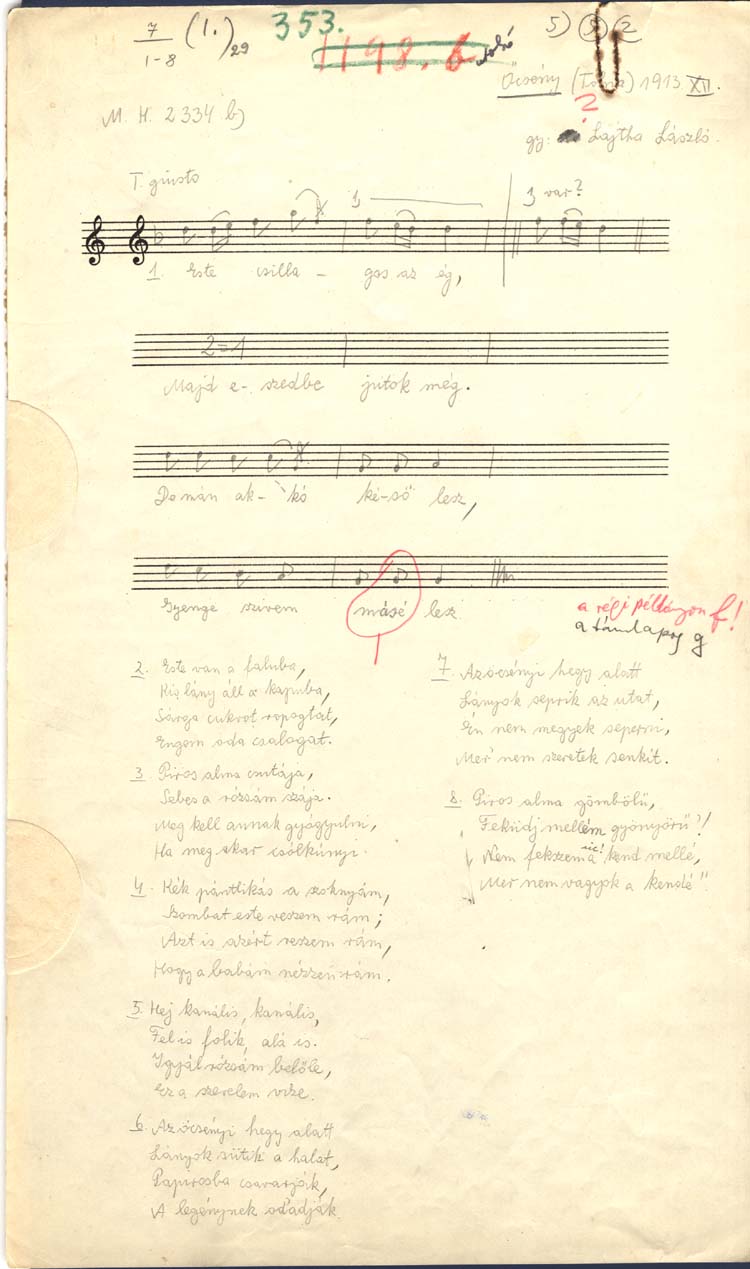 7 (1.) 29
1-8
353.
1198. b
5) (3) (2
Őcsény (Tolna) 1913. XII.
?
M. H. 2334 b)
gy: Lajtha László.
T. giusto
3
3 var?
1. Este csilla - gos az ég,
2=1
Majd e- szedbe jutok még.
De mán ak- kó ké-ső lesz,
Gyenge szivem másé lesz.
a régi példányon f!
a támlapos g
2. Este van a faluba,
Kis lány áll a kapuba,
Sárga cukrot ropogtat,
Engem oda csalogat.
3. Piros alma csutája,
Sebes a rózsám szája.
Meg kell annak gyógyulni,
Ha meg akar csólkúnyi.
4. Kék pántlikás a szoknyám,
Szombat este veszem rám;
Azt is azért veszem rám,
Hogy a babám nézzen rám.
5. Hej kanális, kanális,
Fel is folik, alá is.
Igyál rózsám belőle,
Ez a szerelem vize.
6. Az öcsényi hegy alatt
Lányok sütik a halat,
Papirosba csavarják,
A legénynek odadják.
7. Az öcsényi hegy alatt
Lányok seprik az utat,
Én nem megyek seperni,
Mer nem szeretek senkit.
8. Piros alma gömbölű,
Feküdj mellém gyönyörű!
sic!
Nem fekszem a kend mellé,
Mer nem vagyok a kendé"